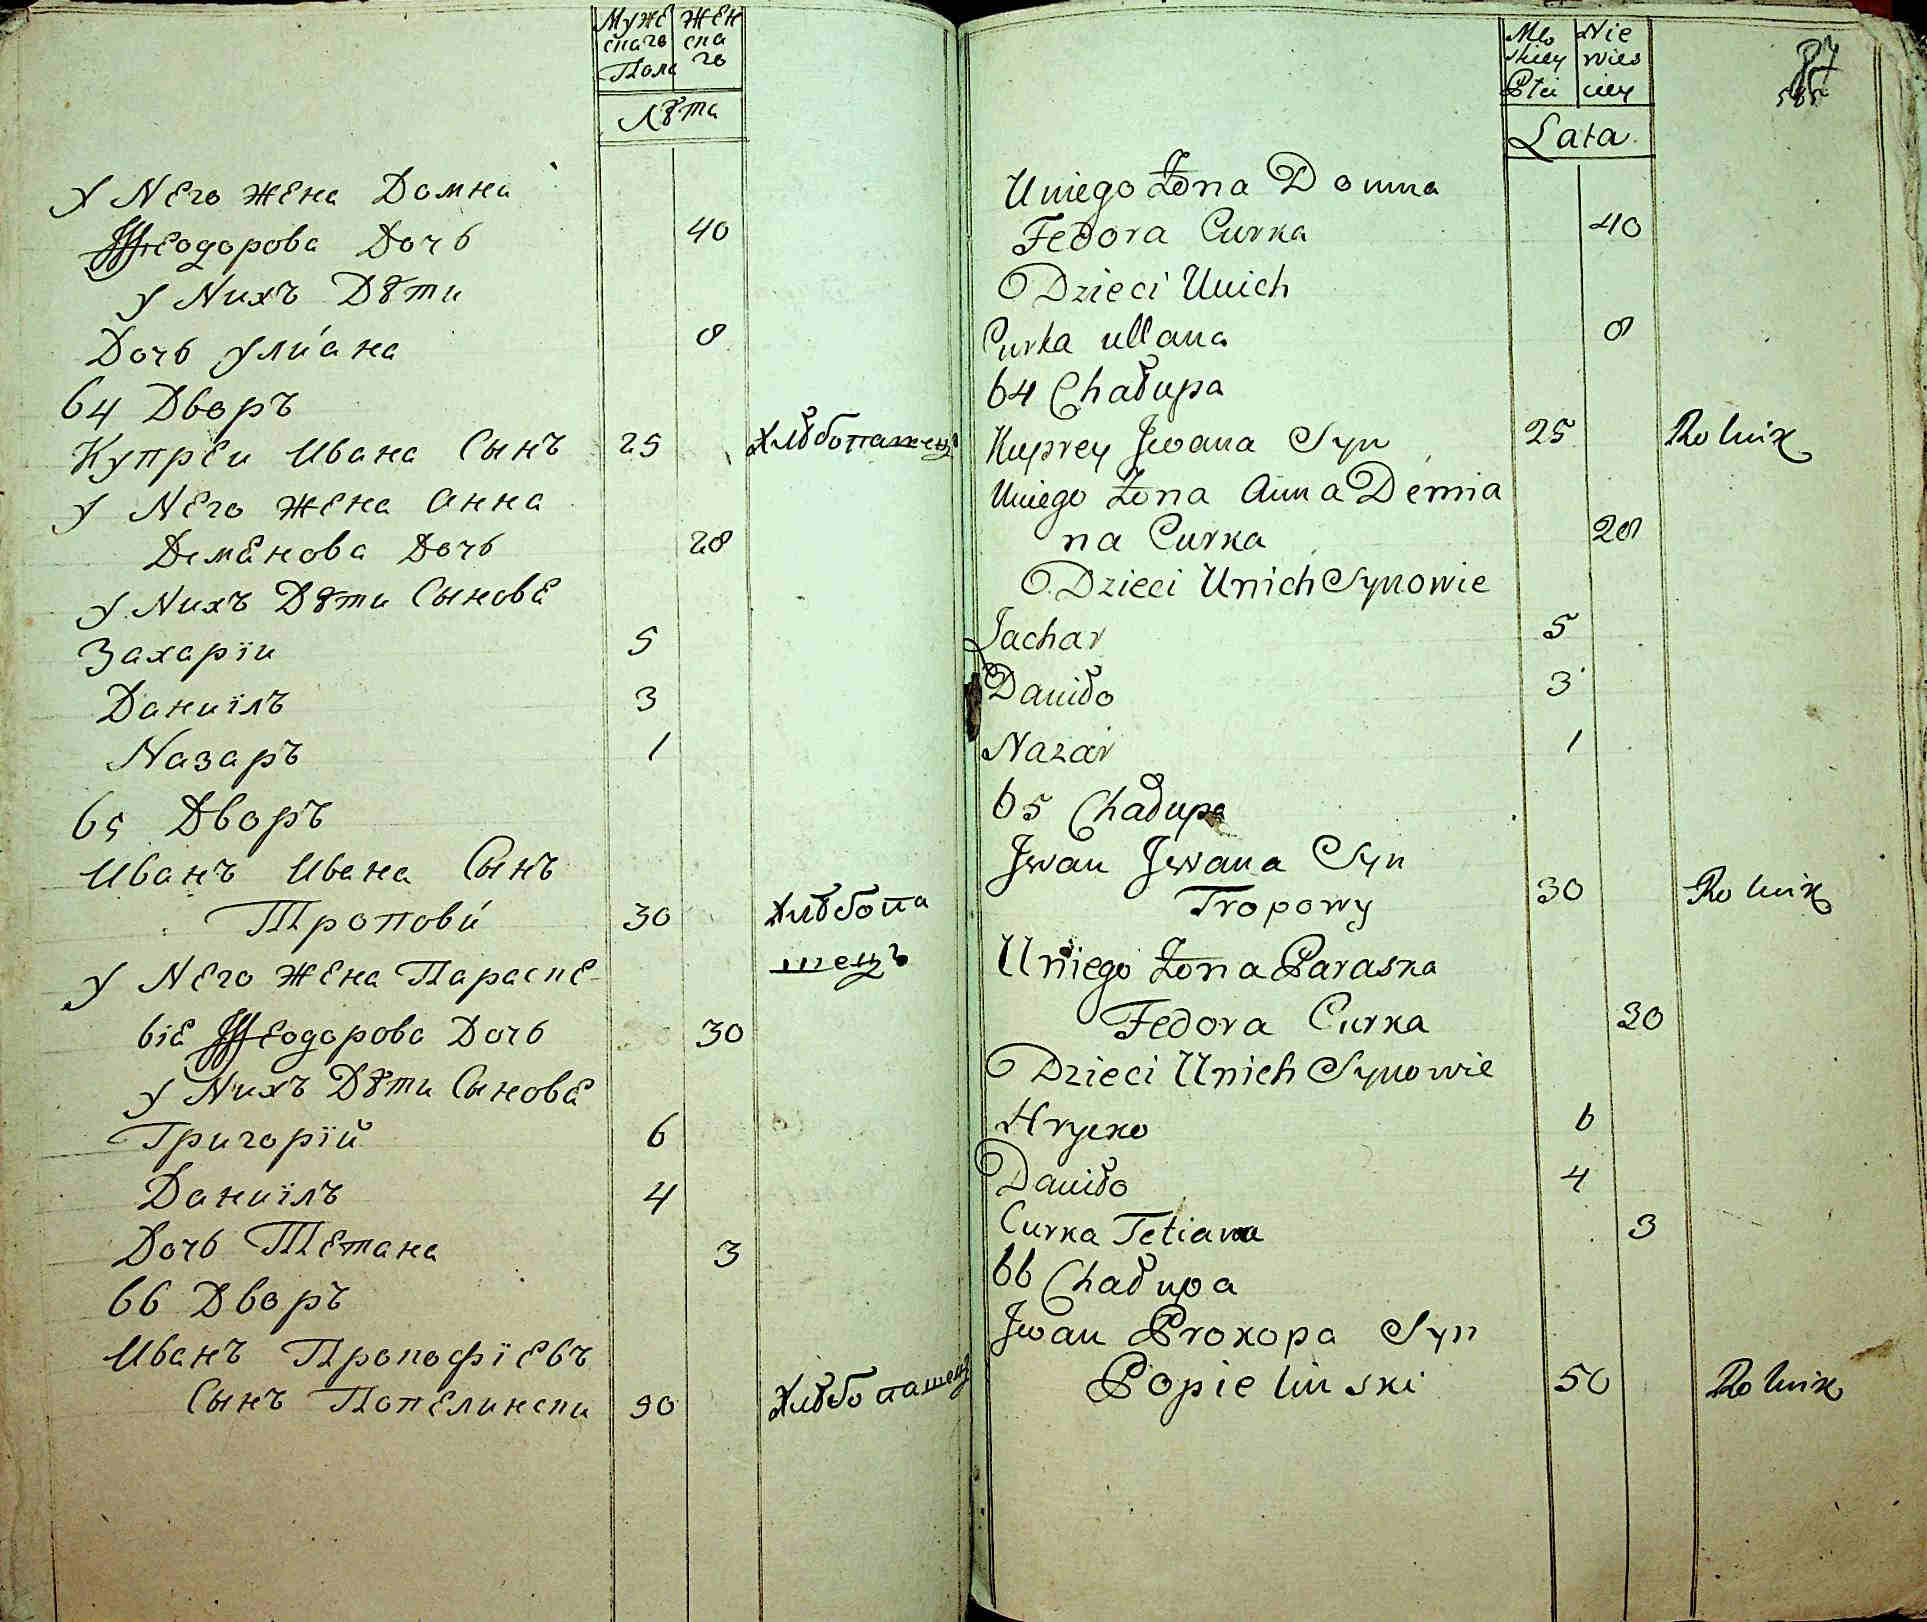 Муже Жен
скаго ска
Пола го
Лѣта
У Него жена Домна
Ѳеодорова Дочь 40
У Нихъ Дѣти
Дочь Улiана 8
64 Дворъ
Купреи Ивана Сынъ 25 Хлѣбопашецъ
У Него жена Анна
Деменова Дочь 28
У Нихъ Дѣти Сынове
Захарїи 5
Даниїлъ 3
Назаръ 1
65 Дворъ
Иванъ Ивана Сынъ
Тропови 30 Хлѣбопа
шецъ
У Него жена Параске
віе Ѳеодорова Дочь 30
У Нихъ Дѣти Сынове
Григорїй 6
Даниїлъ 4
Дочь Тетана 3
66 Дворъ
Иванъ Прокофїевъ
Сынъ Попелински 50 Хлѣбопашец
Mę Nie
skiey wies
Płci ciey
87
Lata
U niego Żona Domna
Fedora Curka 40
Dzieci Unich
Curka ullana 8
64 Chałupa
Kuprey Jwana Syn 25 Rolnik
Uniego Żona Anna Demia
na Curka 28
Dzieci Unich Synowie
Zachar 5
Daniło 3
Nazar 1
65 Chałupa
Jwan Jwana Syn
Tropowy 30 Rolnik
Uniego Żona Paraska
Fedora Curka 30
Dzieci Unich Synowie
Hrycko 6
Daniło 4
Curka Tetiana 3
66 Chałupa
Jwan Prokopa Syn
Popielinski 50 Rolnik